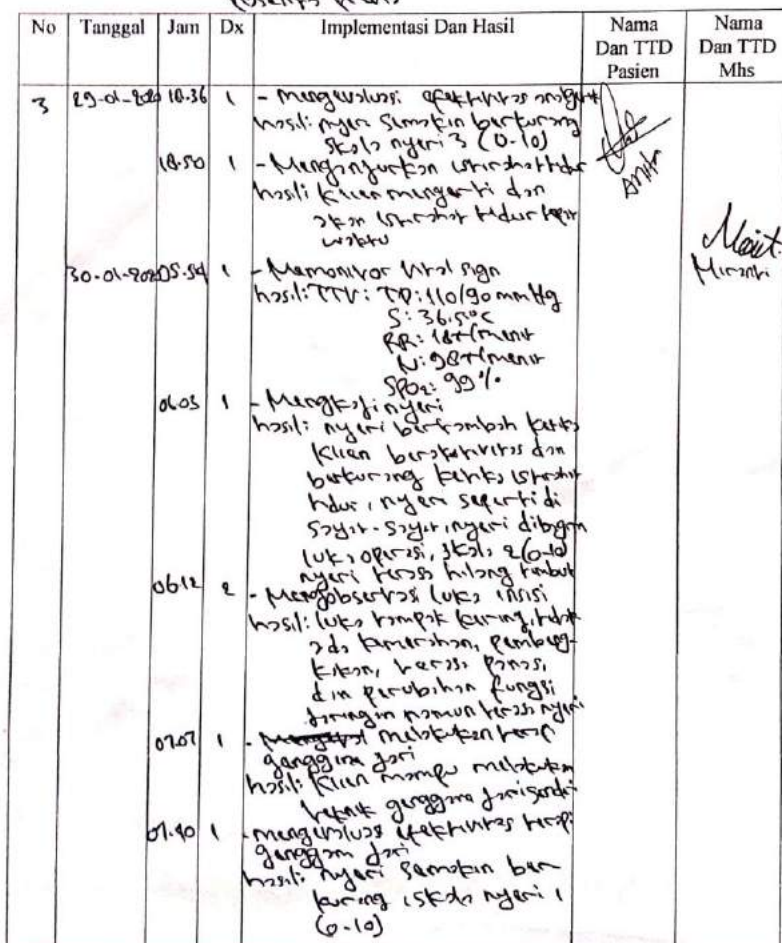 No Tanggal Jam Dx Implementasi Dan Hasil Nama Dan TTD Pasien Nama Dan TTD Mhs
3 29-01-2020 18.36 1 - Mengevaluasi efektivitas
hasil: nyeri semakin berkurang
skala nyeri 3 (0-10)
18.50 1 - Menganjurkan istirahat tidur
hasil: Klien mengerti dan
akan istirahat tidur tepat
waktu
Miranti
30-01-2020 05.54 1 - Memonitor vital sign
hasil: TTV: TD: 110/90 mmHg
S: 36,5°C
RR: 18x/menit
N: 98x/menit
SPO2: 99%
06.03 1 - Mengkaji nyeri
hasil: nyeri bertambah ketika
Klien beraktivitas dan
berkurang ketika istirahat
tidur, nyeri seperti di
sayat-sayat, nyeri dibagian
luka operasi, skala 2 (0-10)
nyeri terasa hilang timbul
06.12 2 - Mengobservasi luka insisi
hasil: luka tampak kering, tidak
ada kemerahan, pembeng-
kakan, terasa panas,
dan perubahan fungsi
jaringan namun terasa nyeri
07.07 1 - melakukan terapi
genggam jari
hasil: Klien mampu melakukan
teknik genggam jari sendiri
07.40 1 - mengevaluasi efektivitas terapi
genggam jari
hasil: nyeri semakin ber
kurang, skala nyeri 1
(0-10)